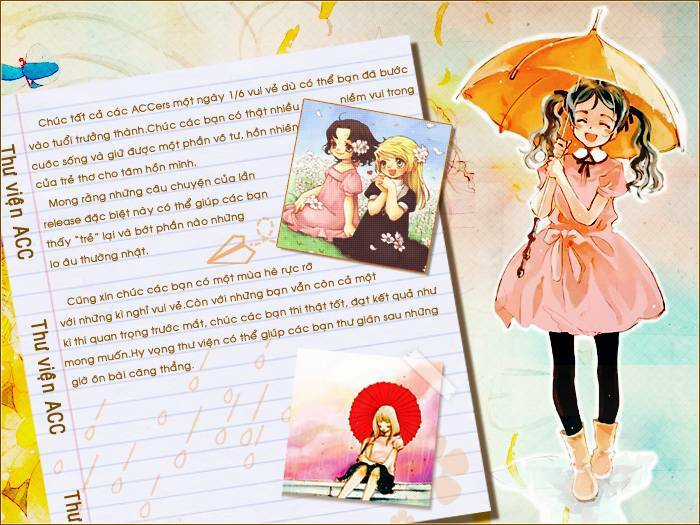 Chúc tất cả các ACCers một ngày 1/6 vui vẻ dù có thể bạn đã bước
vào tuổi trưởng thành.Chúc các bạn có thật nhiều niềm vui trong
cuộc sống và giữ được một phần vô tư, hồn nhiên
của trẻ thơ cho tâm hồn mình.
Mong rằng những câu chuyện của lần
release đặc biệt này có thể giúp các bạn
thấy "trẻ" lại và bớt phần nào những
lo âu thường nhật.
Cũng xin chúc các bạn có một mùa hè rực rỡ
với những kì nghỉ vui vẻ.Còn với những bạn vẫn còn cả một
kì thi quan trọng trước mắt, chúc các bạn thi thật tốt, đạt kết quả như
mong muốn.Hy vọng thư viện có thể giúp các bạn thư giãn sau những
giờ ôn bài căng thẳng.
Thư viện ACC
Thư viện ACC
Thư